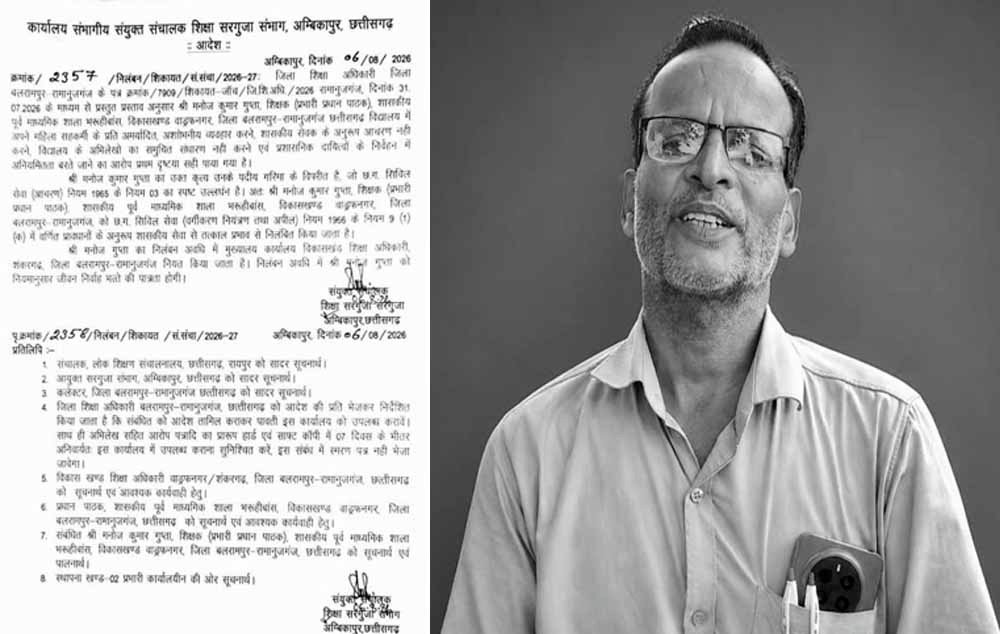 कार्यालय संभागीय संयुक्त संचालक शिक्षा सरगुजा संभाग, अम्बिकापुर, छत्तीसगढ़
:: आदेश ::
अम्बिकापुर, दिनांक 06/08/2026
क्रमांक/2357/निलंबन/शिकायत/सं.संचा/2026-27: जिला शिक्षा अधिकारी जिला
बलरामपुर-रामानुजगंज के पत्र क्रमांक/7909/शिकायत-जॉच/जि.शि.अधि./2026 रामानुजगंज, दिनांक 31.
07.2026 के माध्यम से प्रस्तुत प्रस्ताव अनुसार श्री मनोज कुमार गुप्ता, शिक्षक (प्रभारी प्रधान पाठक), शासकीय
पूर्व माध्यमिक शाला भरूहीबांस, विकासखण्ड वाड्रफनगर, जिला बलरामपुर-रामानुजगंज छत्तीसगढ़ विद्यालय में
अपने महिला सहकर्मी के प्रति अमर्यादित, अशोभनीय व्यवहार करने, शासकीय सेवक के अनुरूप आचरण नही
करने, विद्यालय के अभिलेखो का समुचित संधारण नही करने एवं प्रशासनिक दायित्वों के निर्वहन में
अनियमितता बरते जाने का आरोप प्रथम दृष्टया सही पाया गया है।
श्री मनोज कुमार गुप्ता का उक्त कृत्य उनके पदीय गरिमा के विपरीत है, जो छ.ग. सिविल
सेवा (आचरण) नियम 1965 के नियम 03 का स्पष्ट उल्लंघन है। अतः श्री मनोज कुमार गुप्ता, शिक्षक (प्रभारी
प्रधान पाठक), शासकीय पूर्व माध्यमिक शाला भरूहीबांस, विकासखण्ड वाड्रफनगर, जिला
बलरामपुर-रामानुजगंज, को छ.ग. सिविल सेवा (वर्गीकरण नियंत्रण तथा अपील) नियम 1966 के नियम 9 (1)
(क) में वर्णित प्रावधानों के अनुरूप शासकीय सेवा से तत्काल प्रभाव से निलंबित किया जाता है।
श्री मनोज गुप्ता का निलंबन अवधि में मुख्यालय कार्यालय विकासखंड शिक्षा अधिकारी,
शंकरगढ़, जिला बलरामपुर-रामानुजगंज नियत किया जाता है। निलंबन अवधि में श्री मनोज गुप्ता को
नियमानुसार जीवन निर्वाह भत्ते की पात्रता होगी।
संयुक्त संचालक
शिक्षा सरगुजा सरगुजा
अम्बिकापुर,छत्तीसगढ़
पृ.क्रमांक/2358/निलंबन/शिकायत/सं.संचा/2026-27 अम्बिकापुर, दिनांक 06/08/2026
प्रतिलिपि :-
1. संचालक, लोक शिक्षण संचालनालय, छत्तीसगढ़, रायपुर को सादर सूचनार्थ।
2. आयुक्त सरगुजा संभाग, अम्बिकापुर, छत्तीसगढ़ को सादर सूचनार्थ।
3. कलेक्टर, जिला बलरामपुर-रामानुजगंज छत्तीसगढ़ को सादर सूचनार्थ।
4. जिला शिक्षा अधिकारी बलरामपुर-रामानुजगंज, छत्तीसगढ़ को आदेश की प्रति भेजकर निर्देशित
किया जाता है कि संबंधित को आदेश तामिल कराकर पावती इस कार्यालय को उपलब्ध करावे।
साथ ही अभिलेख सहित आरोप पत्रादि का प्रारूप हार्ड एवं साफ्ट कॉपी में 07 दिवस के भीतर
अनिवार्यतः इस कार्यालय में उपलब्ध कराना सुनिश्चित करें, इस संबंध में स्मरण पत्र नही भेजा
जावेगा।
5. विकास खण्ड शिक्षा अधिकारी वाड्रफनगर/शंकरगढ़, जिला बलरामपुर-रामानुजगंज, छत्तीसगढ़
को सूचनार्थ एवं आवश्यक कार्यवाही हेतु।
6. प्रधान पाठक, शासकीय पूर्व माध्यमिक शाला भरूहीबांस, विकासखण्ड वाड्रफनगर, जिला
बलरामपुर-रामानुजगंज, छत्तीसगढ़ को सूचनार्थ एवं आवश्यक कार्यवाही हेतु।
7. संबंधित श्री मनोज कुमार गुप्ता, शिक्षक (प्रभारी प्रधान पाठक), शासकीय पूर्व माध्यमिक शाला
भरूहीबांस, विकासखण्ड वाड्रफनगर, जिला बलरामपुर-रामानुजगंज, छत्तीसगढ़ को सूचनार्थ एवं
पालनार्थ।
8. स्थापना खण्ड-02 प्रभारी कार्यालयीन की ओर सूचनार्थ।
संयुक्त संचालक
शिक्षा सरगुजा संभाग
अम्बिकापुर,छत्तीसगढ़